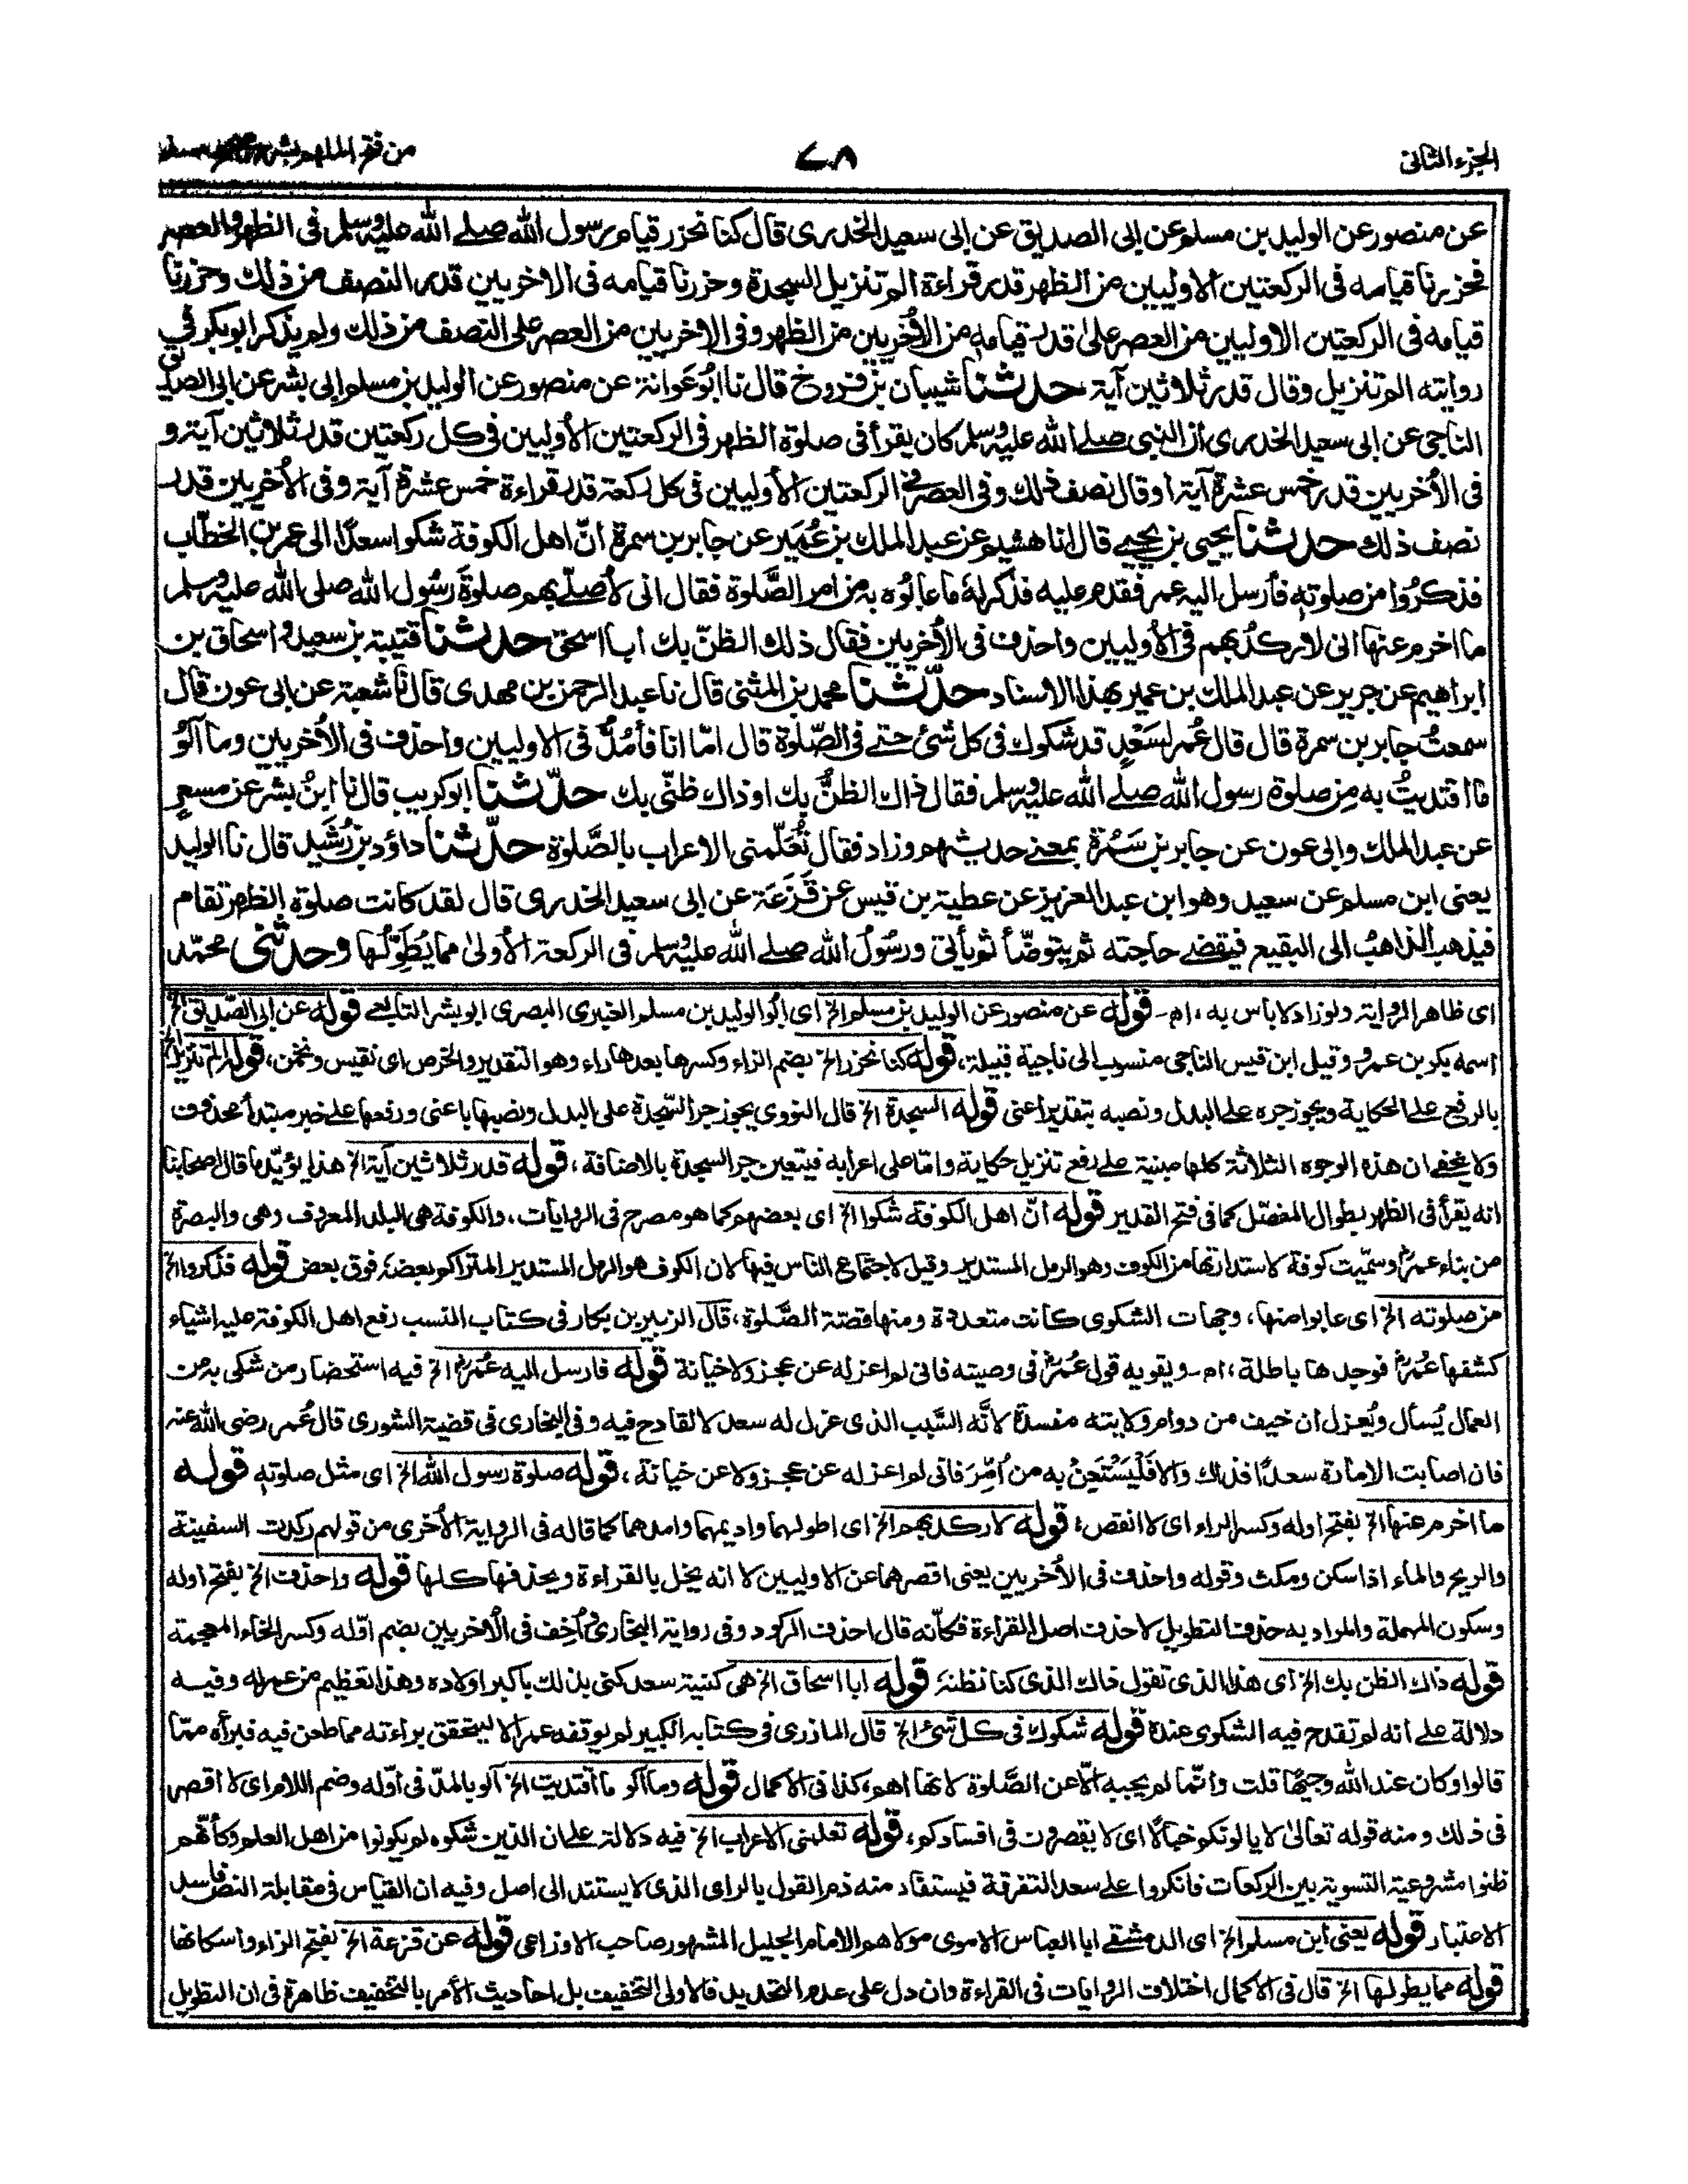 الجزء الثانى
٧٨
من فتح الملهم بشرح صحيح مسلم
عن منصور عن الوليد بن مسلم عن ابى الصديق عن ابى سعيد الخدرى قال كنا نحزر قيام رسول الله صلے الله عليه وسلم فى الظهر والعصر
فحزرنا قيامه فى الركعتين الاوليين من الظهر قدر قراءة الم تنزيل السجدة وحزرنا قيامه فى الاخريين قدر النصف من ذلك وحزرنا
قيامه فى الركعتين الاوليين من العصر على قدر قيامه من الأخريين من الظهر وفى الاخريين من العصر على النصف من ذلك ولم يذكر ابوبكر فى
روايته الم تنزيل وقال قدر ثلاثين آية حدثنا شيبان بن فروخ قال نا ابوعوانة عن منصور عن الوليد بن مسلم ابى بشر عن ابى الصديق
الناجى عن ابى سعيد الخدرى ان النبى صلے الله عليه وسلم كان يقرأ فى صلوة الظهر فى الركعتين الأوليين فى كل ركعتين قدر ثلاثين آية و
فى الأخريين قدر خمس عشرة آية او قال نصف ذلك وفى العصر فى الركعتين الأوليين فى كل ركعة قدر قراءة خمس عشرة آية وفى الأخريين قدر
نصف ذلك حدثنا يحيى بن يحيے قال انا هشيم عن عبد الملك بن عُمَير عن جابر بن سمرة انّ اهل الكوفة شكوا سعدًا الى عمر بن الخطّاب
فذكرُوا من صلوته فأرسل اليه عمر فقدم عليه فذكر له ما عابُوه به من امر الصَّلوة فقال انى لأصلّے بهم صلوةَ رسُول الله صلى الله عليه وسلم
ما اخرم عنها انى لاركدُ بهم فى الأوليين واحذف فى الأخريين فقال ذلك الظنّ بك ابا اسحق حدثنا قتيبة بن سعيد و اسحاق بن
ابراهيم عن جرير عن عبد الملك بن عمير بهذا الاسناد حدّثنا محمد بن المثنى قال نا عبد الرحمن بن مهدى قال نا شعبة عن ابى عون قال
سمعتُ جابر بن سمرة قال قال عُمر لسَعْدٍ قد شكوك فى كل شئ حتے فى الصّلوة قال امّا انا فأمُدُّ فى الاوليين واحذف فى الأخريين وما آلوُ
ما اقتديتُ به مِن صلوة رسول الله صلے الله عليه وسلم فقال ذاك الظنُّ بك او ذاك ظنّى بك حدّثنا ابوكريب قال نا ابنُ بشر عن مسعرٍ
عن عبد الملك وابى عون عن جابر بن سَمُرَة بمعنے حديثهم وزاد فقال تُعَلّمنى الاعراب بالصَّلوة حدّثنا داؤد بن رُشَيد قال نا الوليد
يعنى ابن مسلم عن سعيد وهو ابن عبد العزيز عن عطية بن قيس عن قَزَعَة عن ابى سعيد الخدرى قال لقد كانت صلوة الظهر تقام
فيذهب الذاهبُ الى البقيع فيقضے حاجته ثم يتوضّأ ثم يأتى ورسُولُ الله صلے الله عليه وسلم فى الركعة الأولىٰ مما يُطَوّلُها وحدثنى محمّد
اى ظاهر الرواية ولوزاد لاباس به، اھ- قوله عن منصور عن الوليد بن مسلم الخ اى ابُو الوليد بن مسلم العنبرى البصرى ابوبشر التابعے قوله عن ابى الصّديق الخ
اسمه بكر بن عمرو وقيل ابن قيس الناجى منسوب الى ناجية قبيلة، قوله كنا نحزر الخ بضم الزاء وكسرها بعدها راء وهو التقدير والخرص اى نقيس ونخمن، قوله الم تنزيل الخ
بالرفع على الحكاية ويجوز جره على البدل ونصبه بتقدير اعنى قوله السجدة الخ قال النووى يجوز جر السّجدة على البدل ونصبها باعنى ورفعها على خبر مبتدأ محذوف
ولا يخفے ان هذه الوجوه الثلاثة كلها مبنية على رفع تنزيل حكاية واما على اعرابه فيتعين جر السجدة بالاضافة، قوله قدر ثلاثين آية الخ هذا يؤيّد ما قال اصحابنا
انه يقرأ فى الظهر بطوال المفصّل كما فى فتح القدير قوله انّ اهل الكوفة شكوا الخ اى بعضهم كما هو مصرح فى الروايات، والكوفة هى البلد المعروف وهى والبصرة
من بناء عمرؓ وسمّيت كوفة لاستدارتها من الكوف وهو الرمل المستدير وقيل لاجتماع الناس فيها لان الكوف هو الرمل المستدير المتراكم بعضهٗ فوق بعض قوله فذكروا الخ
من صلوته الخ اى عابوا منها، وجهات الشكوى كانت متعددة ومنها قصّة الصَّلوة، قال الزبير بن بكار فى كتاب النسب رفع اهل الكوفة عليه اشياء
كشفها عُمرؓ فوجدها باطلة، اھ- ويقويه قول عُمرؓ فى وصيته فانى لم اعزله عن عجز ولا خيانة قوله فارسل اليه عُمرؓ الخ فيه استحضار من شكى به من
العمال يُسأل ويُعزل ان خيف من دوام ولايته مفسدة لانَّه السَّبب الذى عزل له سعد لا لقادح فيه وفى البخارى فى قضية الشورى قال عُمر رضى الله عنه
فان اصابت الامارة سعدًا فذاك والا فَلْيَسْتَعِنْ به من أُمِّرَ فانى لم اعزله عن عجز ولا عن خيانة، قوله صلوة رسول الله الخ اى مثل صلوته قوله
ما اخرم عنها الخ بفتح اوله وكسر الراء اى لا انقص، قوله لاركد بهم الخ اى اطولهما واديمهما وامدهما كما قاله فى الرواية الأخرى من قولهم ركدت السفينة
والريح والماء اذا سكن ومكث وقوله واحذف فى الأخريين يعنى اقصرهما عن الاوليين لا انه يخل بالقراءة ويحذفها كلها قوله واحذف الخ بفتح اوله
وسكون المهملة والمراد به حذف التطويل لا حذف اصل القراءة فكأنّه قال احذف الركود وفى رواية البخارى وأُخِف فى الأخريين بضم اوّله وكسر الخاء المعجمة
قوله ذاك الظن بك الخ اى هذا الذى تقول ذاك الذى كنا نظنهٗ قوله ابا اسحاق الخ هى كنية سعد كنى بذلك باكبر اولاده وهذا تعظيم من عمر له وفيه
دلالة على انه لم تقدح فيه الشكوى عنده قوله شكوك فى كل شئ الخ قال المازرى فى كتابه الكبير لم يوقفه عمر الا ليتحقق براءته مما طعن فيه فبرأه ممّا
قالوا وكان عند الله وجيهًا قلت وانّما لم يجبه الّا عن الصَّلوة لانها اهم، كذا فى الاكمال قوله وما آلو ما اقتديت الخ آلو بالمدّ فى اوّله وضم اللام اى لا اقصر
فى ذلك ومنه قوله تعالىٰ لا يالونكم خبالًا اى لا يقصرون فى افسادكم، قوله تعلمنى الاعراب الخ فيه دلالة على ان الذين شكوه لم يكونوا من اهل العلم وكأنّهم
ظنوا مشروعية التسوية بين الركعات فانكروا على سعد التفرقة فيستفاد منه ذم القول بالراى الذى لا يستند الى اصل وفيه ان القياس فى مقابلة النص فاسد
الاعتبار قوله يعنى ابن مسلم الخ اى الدمشقے ابا العباس الاموى مولاهم الامام الجليل المشهور صاحب الاوزاعى قوله عن قزعة الخ بفتح الزاء واسكانها
قوله مما يطولها الخ قال فى الاكمال اختلاف الروايات فى القراءة وان دل على عدم التحديد فالاولى التخفيف بل احاديث الأمر بالتخفيف ظاهرة فى ان التطويل